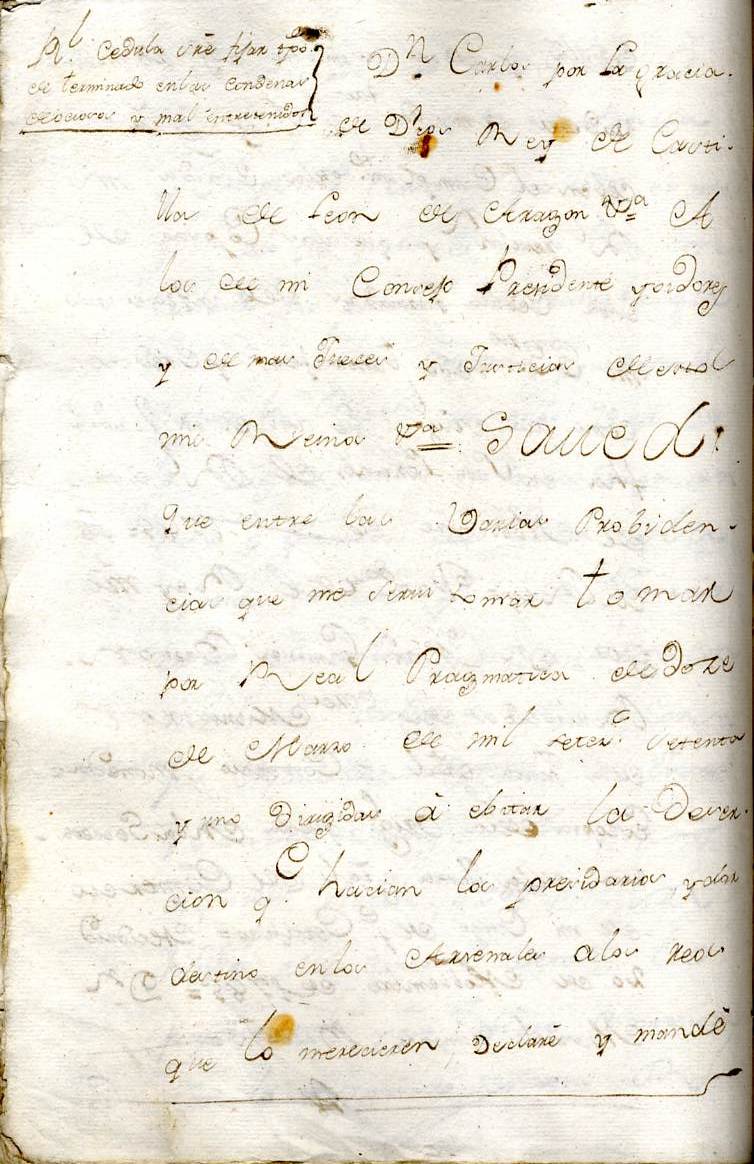 Rl. Cedula sre fijar tpo.
determinado en las Condenas
de ociosos y mal entretenidos
Dn Carlos por la gracia.
de Dios Rey de Casti-
lla de Leon de Aragon &a A
los de mi Consejo Presidente y oidores
y de mas Jueces y Justicias de estos
mi Reino &a Saued.
Que entre las Varias Probiden-
cias que me servi tomar tomar
por Real Pragmatica de doze
de Marzo de mil setec.s setenta
y uno Dirigidas à ebitar la Deser-
cion q.e hacian los presidarios, y dar
destino en los Arsenales a los reos
que lo merecieren, Declaré y mandé